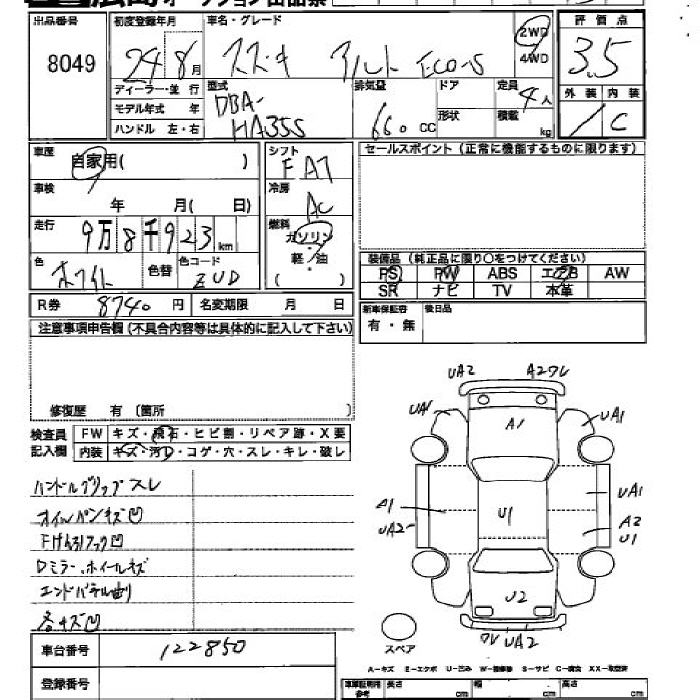 広島オークション出品票
出品番号
8049
初度登録年月
24 8月
車名・グレード
スズキ アルト ECO-S
2WD
4WD
評価点
3.5
ディーラー・並行
モデル年式 年
ハンドル 左・右
型式
DBA-
HA35S
排気量
660 CC
ドア
形状
定員
4人
積載
kg
外装 内装
/ C
車歴
自家用( )
シフト
FAT
セールスポイント (正常に機能するものに限ります)
車検
年 月( 日)
冷房
AC
走行
9万8千923km
燃料
ガソリン
軽・油
( )
色
ホワイト
色替
色コード
ZUD
装備品 (純正品に限り○をつけてください)
PS PW ABS エアB AW
SR ナビ TV 本革
R券 8740円
名変期限 月 日
新車保証書
有・無
後日品
注意事項申告欄 (不具合内容等は具体的に記入して下さい)
修復歴 有 〔箇所 〕
検査員
記入欄
FW キズ・飛石・ヒビ割・リペア跡・X要
内装 キズ・汚れ・コゲ・穴・スレ・キレ・破レ
ハンドルグリップスレ
オイルパンキズ凹
Fけん引フック凹
Dミラー、ホイールキズ
エンドパネル曲り
各キズ凹
UA2
A2ワレ
UA1
A1
UA1
A1
UA2
U1
UA1
A2
U1
U2
ワレ UA2
スペア
車台番号
122850
登録番号
A－キズ E－エクボ U－凹み W－補修跡 S－サビ C－腐食 XX－取替済
車庫証明用
参考
長さ
cm
幅
cm
高さ
cm